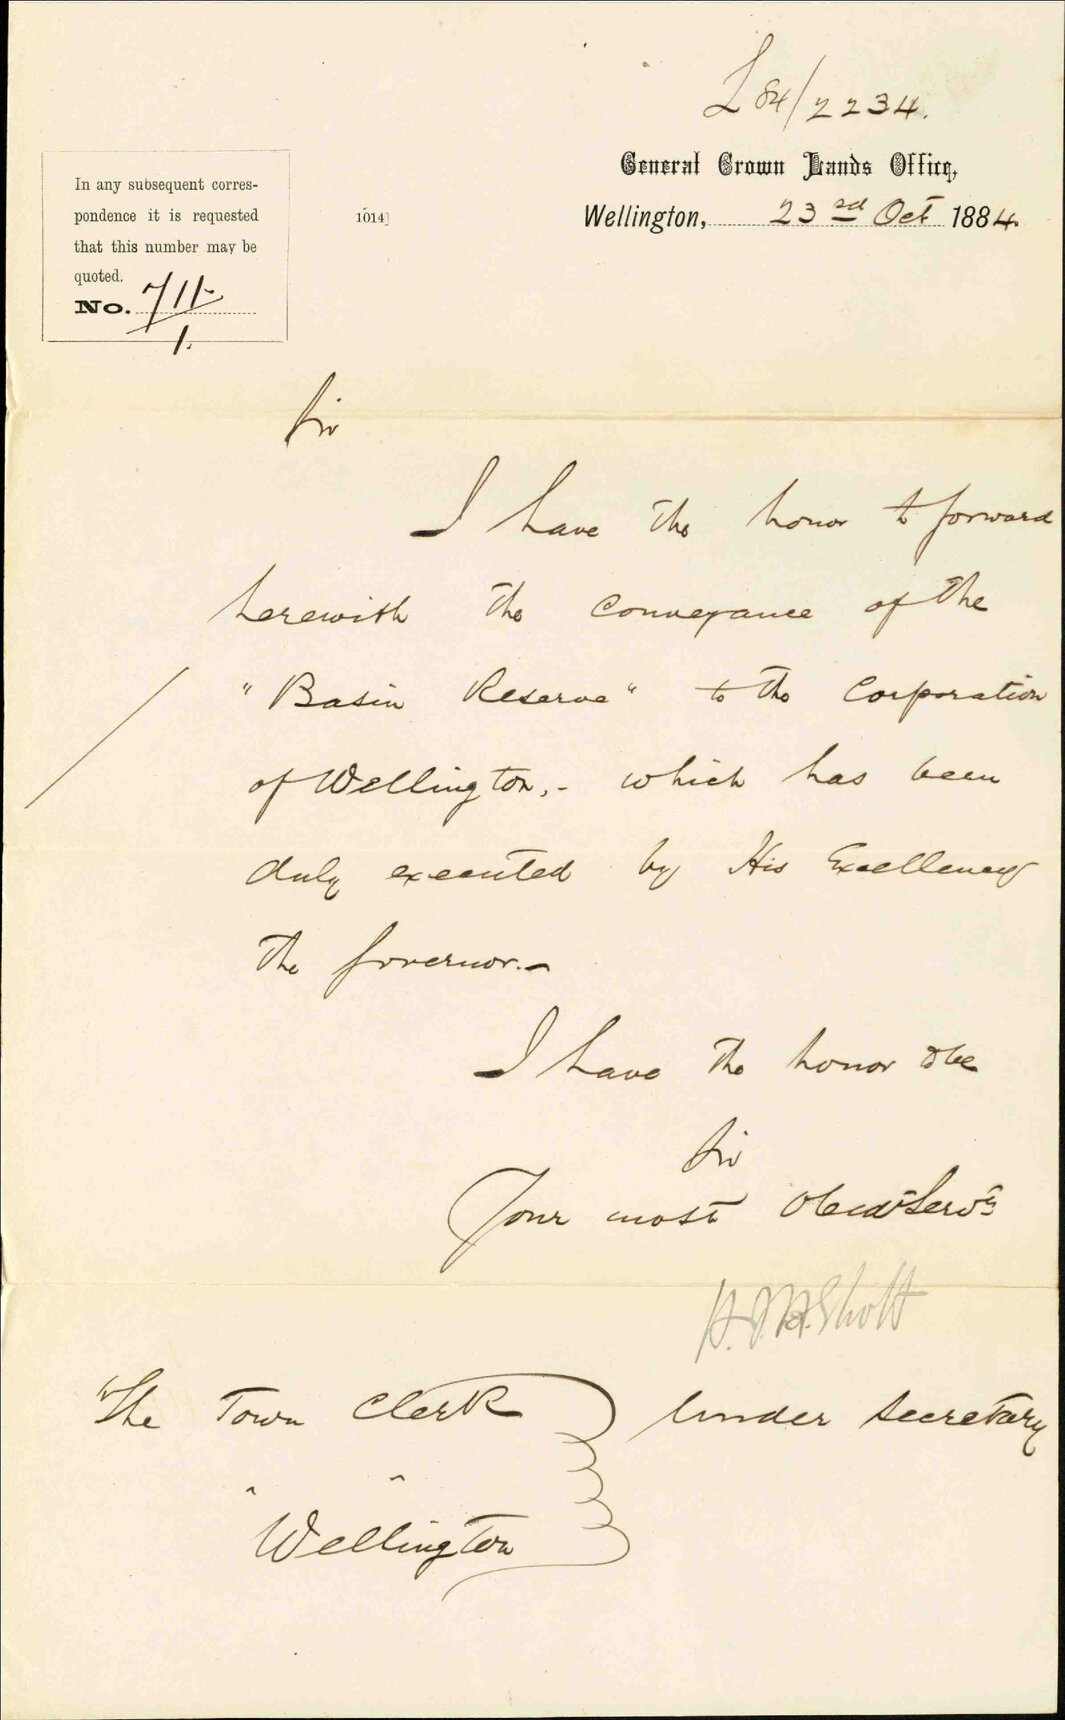 L 84/2234.
General Crown Lands Office,
Wellington, 23rd Oct 1884.
1014]
In any subsequent corres-
pondence it is requested
that this number may be
quoted.
No. 711
1.
Sir
I have the honor to forward
herewith the Conveyance of the
"Basin Reserve" to the Corporation
of Wellington,- which has been
duly executed by His Excellency
the Governor.-
I have the honor to be
Sir
Your most Obedt Servt
The Town Clerk
Under Secretary
Wellington